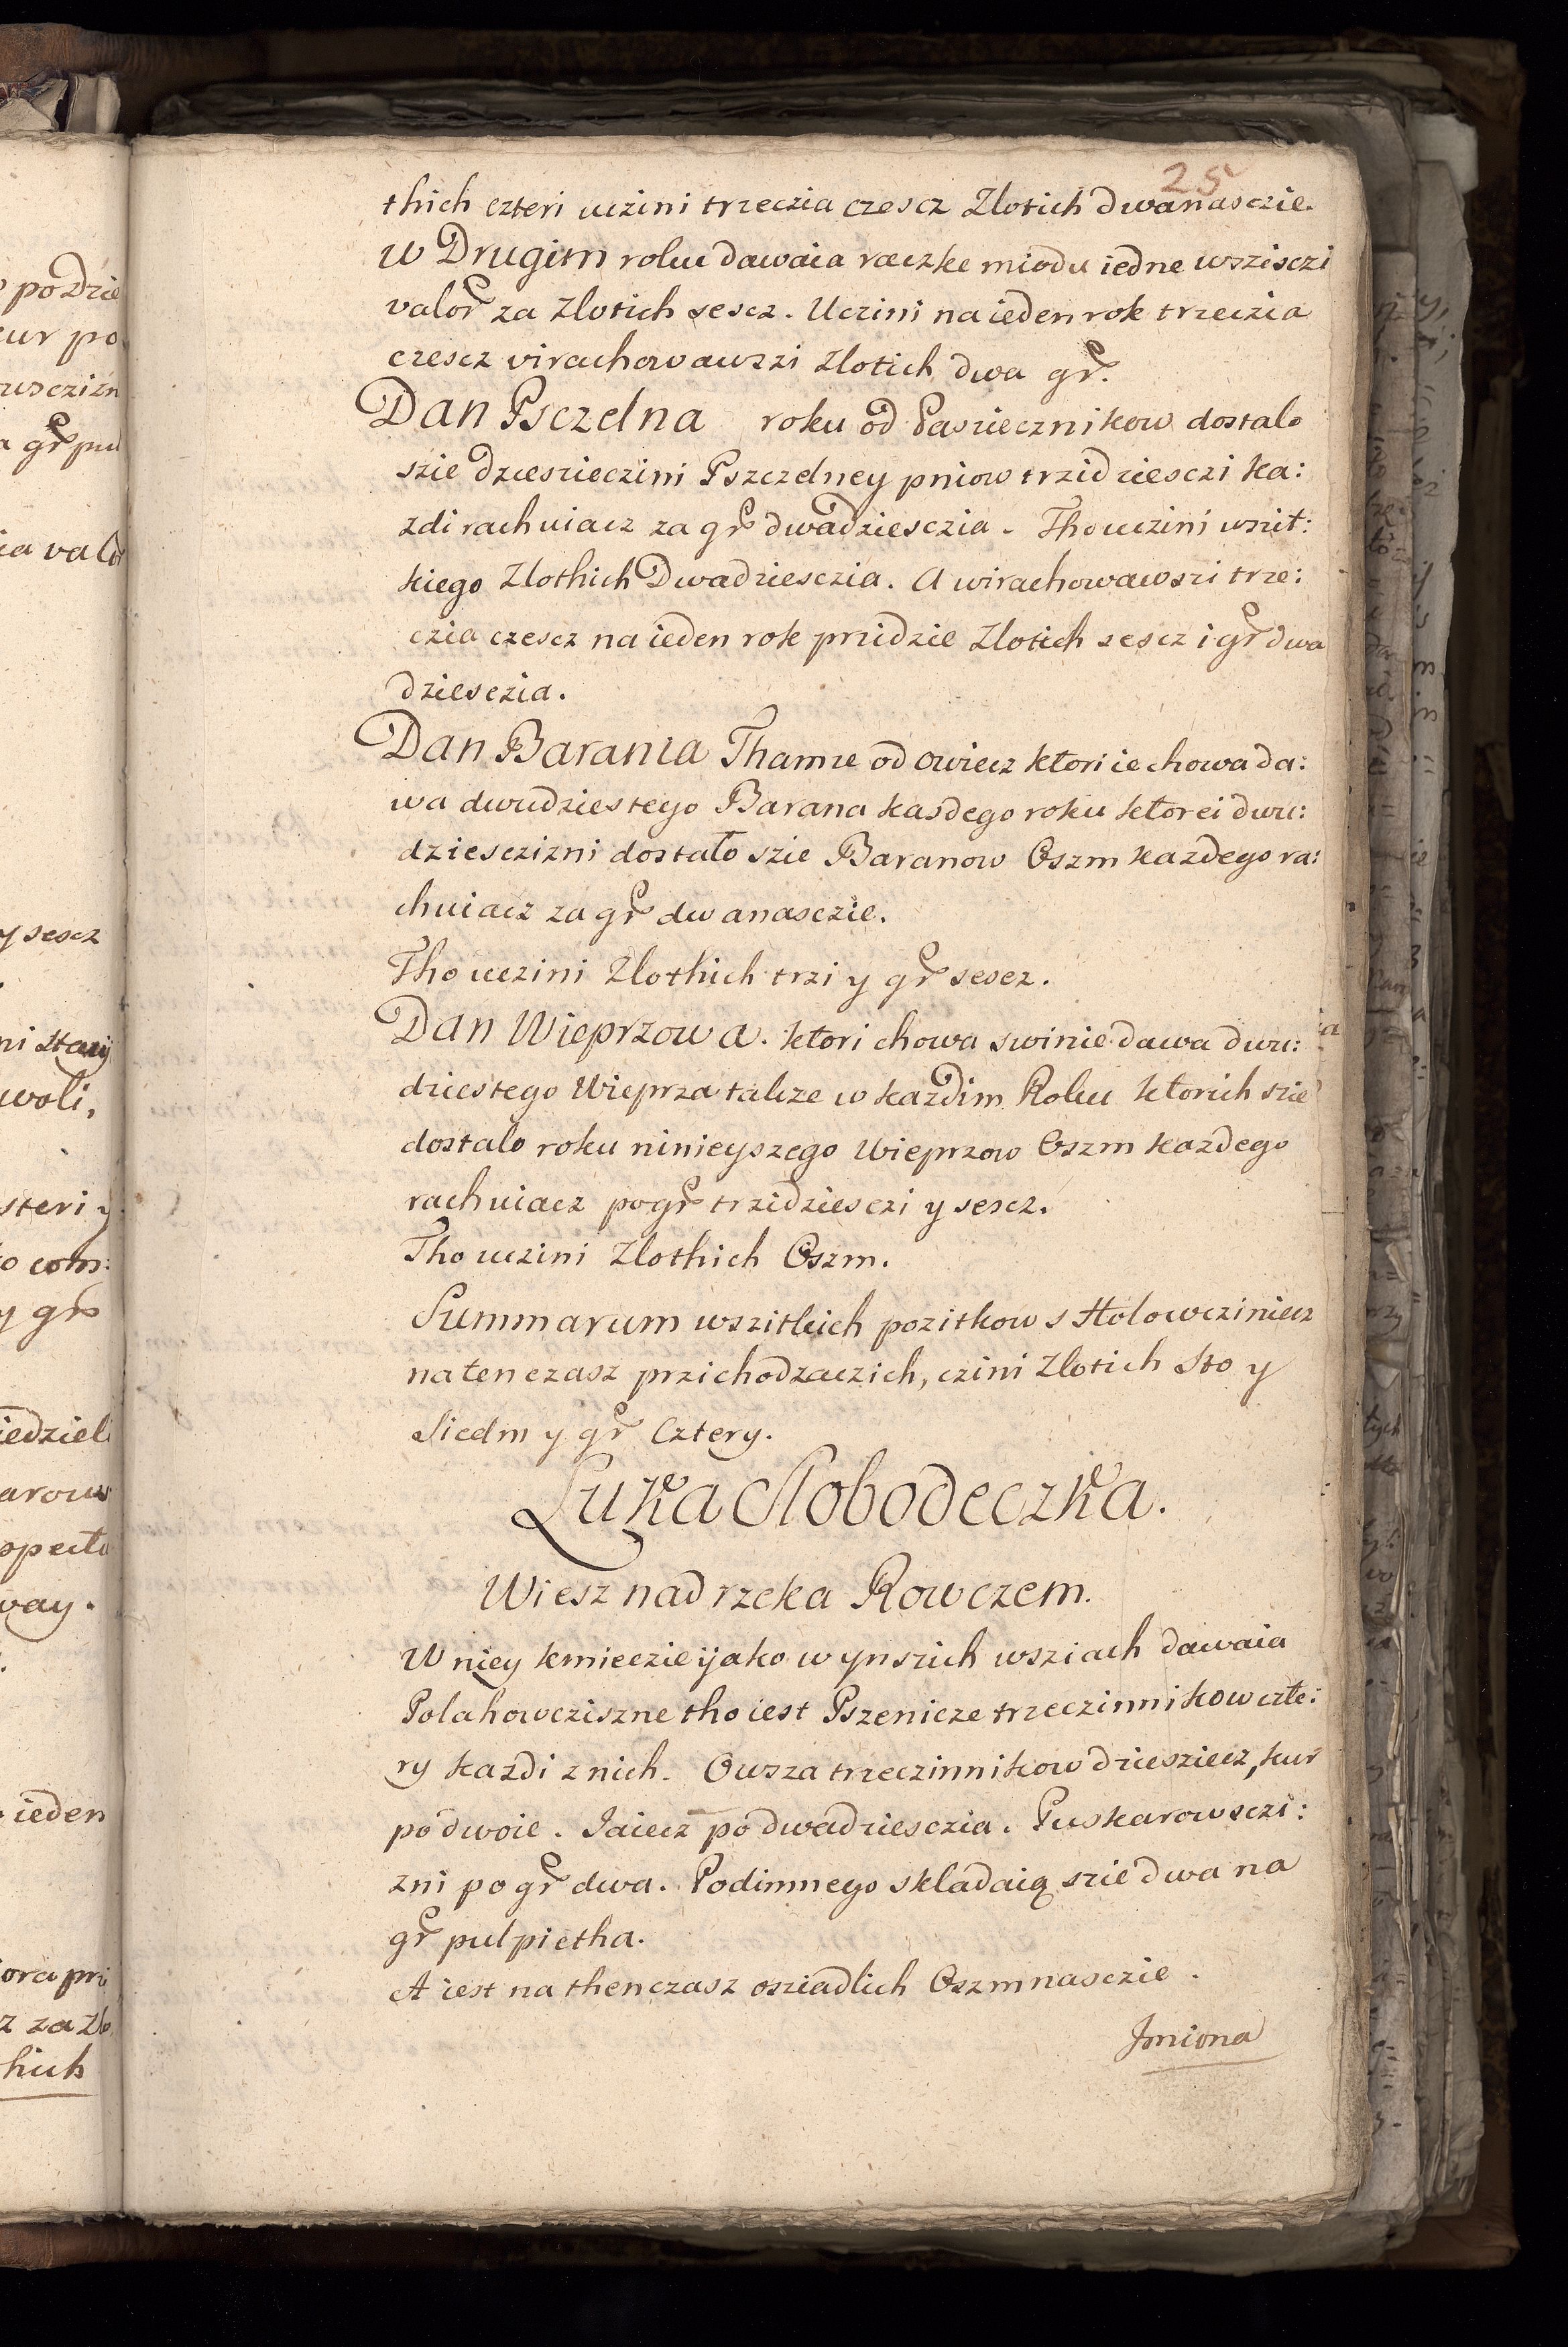 25
thich czteri uczini trzeczia czescz Zlotich dwanasczie.
w Drugim roku dawaia raczke miodu iedne wszisczi
valor za Zlotich sescz. Uczini na ieden rok trzeczia
czescz virachowauszi Zlotich dwa gr.
Dan Psczelna roku od Pasiecznikow dostalo
szie dziesieczini Pszczelney pniow trzidziesczi ka:
zdi rachuiacz za gr dwadziesczia. Tho uczini wszit:
kiego Zlothich Dwadziesczia. A wirachowawszi trze:
czia czescz na ieden rok przidzie Zlotich sescz i gr dwa
dziesczia.
Dan Barania Thamze od owiecz ktori ie chowa da:
wa dwudziestego Barana kasdego roku ktorei dwu:
dziesczizni dostało szie Baranow Oszm kazdego ra:
chuiacz za gr dwanasczie.
Tho uczini Zlothich trzi y gr sescz.
Dan Wieprzowa. ktori chowa swinie dawa dwu:
dziestego Wieprza takze w kazdim Roku ktorich szie
dostalo roku ninieyszego Wieprzow Oszm kazdego
rachuiacz po gr trzidziesczi y sescz.
Tho uczini Zlothich Oszm.
Summarum wszitkich pozitkow s Holowcziniecz
na ten czasz przichodzaczich, czini Zlotich Sto y
Siedm y gr Cztery.
Luka Slobodeczka.
Wiesz nad rzeka Rowczem.
W niey kmieczie ijako w ynszich wsziach dawaia
Polahowcziszne tho iest Pszenicze trzeczinnikow czte:
ry kazdi z nich. Owsza trzeczinnikow dziesziecz, kur
po dwoie. Jaiecz po dwadziesczia. Puskarowsczi:
zni po gr dwa. Podimnego skladaią szie dwa na
gr pulpietha.
A iest na thenczasz osziadlich Oszmnasczie.
Jmiona